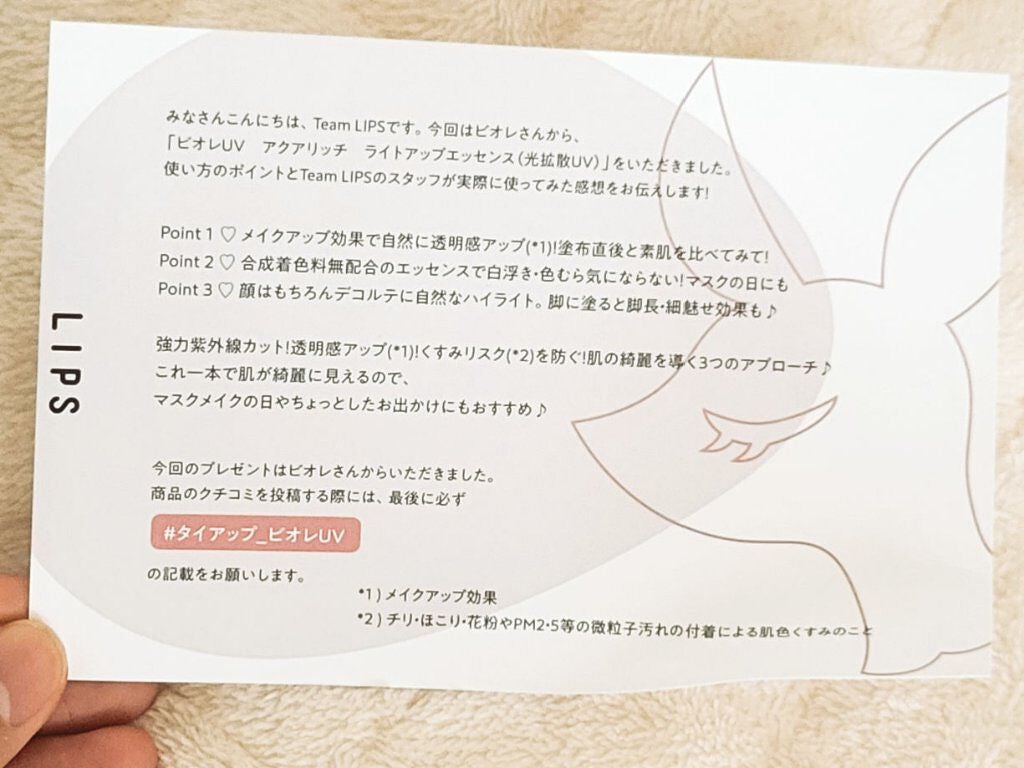 みなさんこんにちは、Team LIPSです。今回はビオレさんから、
「ビオレUV　アクアリッチ　ライトアップエッセンス（光拡散UV）」をいただきました。
使い方のポイントとTeam LIPSのスタッフが実際に使ってみた感想をお伝えします!
Point 1 ♡ メイクアップ効果で自然に透明感アップ(*1)!塗布直後と素肌を比べてみて!
Point 2 ♡ 合成着色料無配合のエッセンスで白浮き・色むら気にならない!マスクの日にも
Point 3 ♡ 顔はもちろんデコルテに自然なハイライト。脚に塗ると脚長・細魅せ効果も♪
強力紫外線カット!透明感アップ(*1)!くすみリスク(*2)を防ぐ!肌の綺麗を導く3つのアプローチ♪
これ一本で肌が綺麗に見えるので、
マスクメイクの日やちょっとしたお出かけにもおすすめ♪
LIPS
今回のプレゼントはビオレさんからいただきました。
商品のクチコミを投稿する際には、最後に必ず
#タイアップ_ビオレUV
の記載をお願いします。
*1 ) メイクアップ効果
*2 ) チリ・ほこり・花粉やPM2・5等の微粒子汚れの付着による肌色くすみのこと